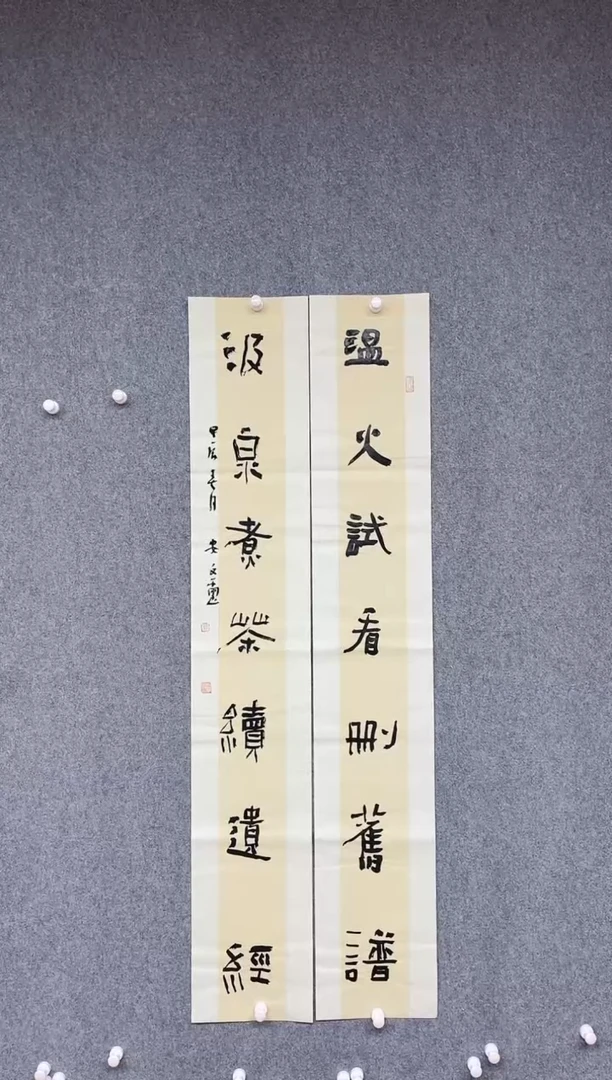 溫火試看刪舊譜
汲泉煮茶續遺經
甲辰春月 安文